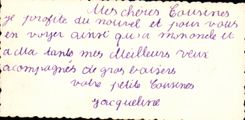 Mes chères Cousines
je profite du nouvel et pour vous
en voyer ainsi qu'a mononcle et
a Ma tante mes Meilleurs veux
acompagnés de gros baisers
votre petite Cousines
Jacqueline